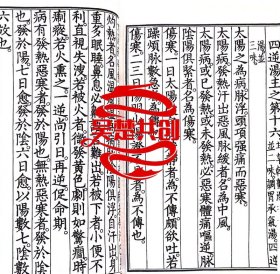 四逆湯主之第十六
太陽之為病脉浮頭項強痛而惡寒
太陽病發熱汗出惡風脉緩者名為中風
太陽病或已發熱或未發熱必惡寒體痛嘔逆脉
陰陽俱緊者名為傷寒
傷寒一日太陽 者為不傳頗欲吐若
躁煩脉數急
傷寒二三日 者為不傳也
灼熱者名風温 陽俱浮自汗出身
重多眠睡鼻息必 難出若被下者小便不
利直視失溲若被 發黃色劇則如驚癇時
瘈瘲若火熏之一逆尚引日再逆促命期
病有發熱惡寒者發於陽也無熱惡寒者發於陰
也發於陽七日愈發於陰六日愈以陽數七陰數
六故也